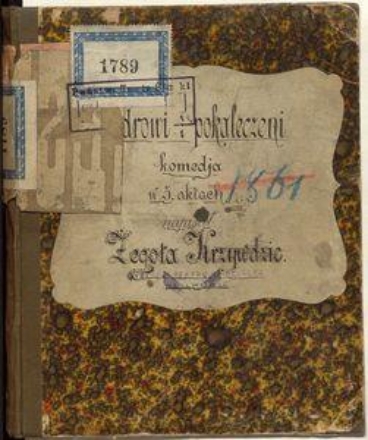 1789
Zdrowi i pokaleczeni
komedja
w 5. aktach
1861
napisał
Żegota Krzywdzic.